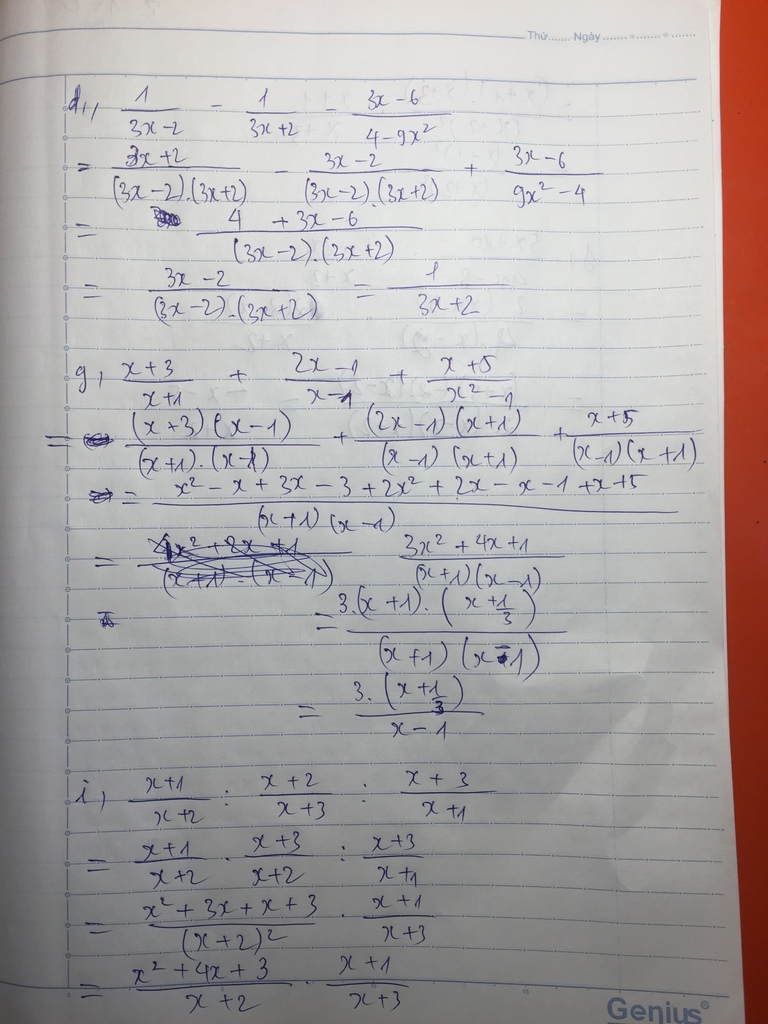 Thứ....... Ngày
d,, 1/(3x-2) - 1/(3x+2) - (3x-6)/(4-9x²)
= (3x+2)/((3x-2).(3x+2)) - (3x-2)/((3x-2).(3x+2)) + (3x-6)/(9x²-4)
= (4+3x-6)/((3x-2).(3x+2))
= (3x-2)/((3x-2).(3x+2)) = 1/(3x+2)
g, (x+3)/(x+1) + (2x-1)/(x-1) + (x+5)/(x²-1)
= ((x+3)(x-1))/((x+1).(x-1)) + ((2x-1)(x+1))/((x-1)(x+1)) + (x+5)/((x-1)(x+1))
= (x²-x+3x-3+2x²+2x-x-1+x+5)/((x+1)(x-1))
= (3x²+4x+1)/((x+1)(x-1))
= (3.(x+1).(x+1/3))/((x+1)(x-1))
= (3.(x+1/3))/(x-1)
i, (x+1)/(x+2) : (x+2)/(x+3) : (x+3)/(x+1)
= (x+1)/(x+2) . (x+3)/(x+2) : (x+3)/(x+1)
= (x²+3x+x+3)/((x+2)²) . (x+1)/(x+3)
= (x²+4x+3)/(x+2) . (x+1)/(x+3)
Genius®